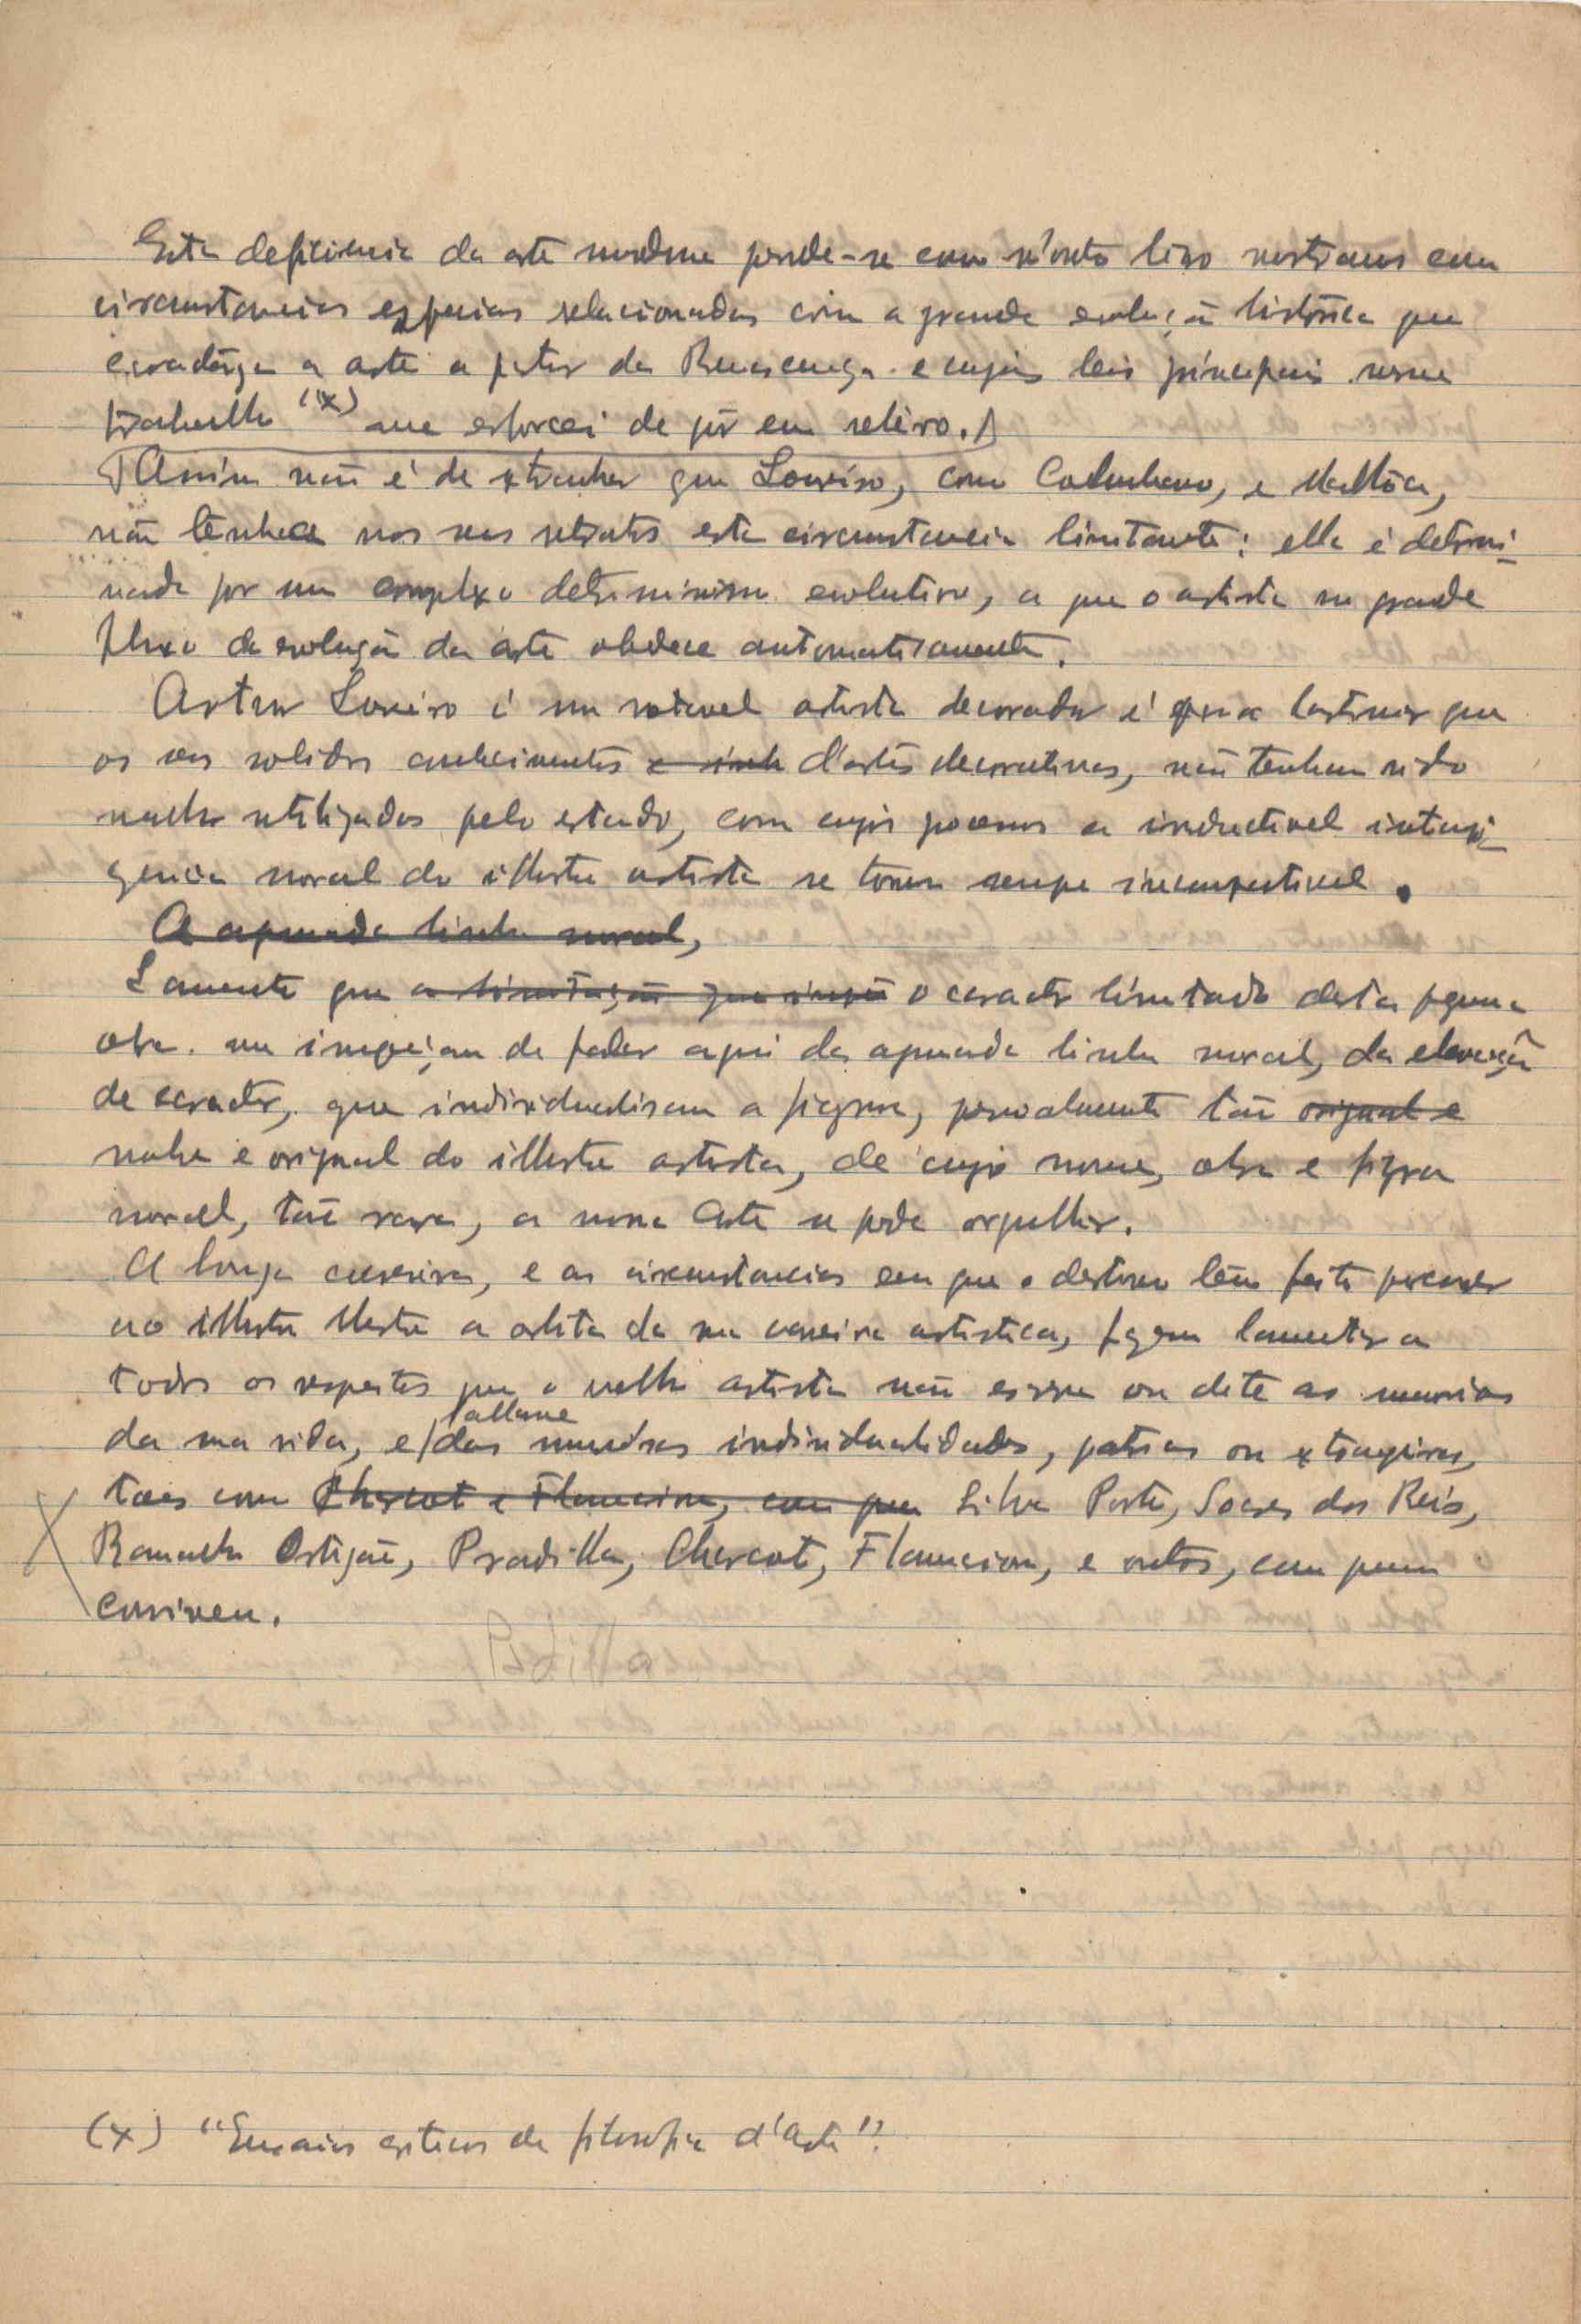 Esta deficiencia da arte moderna prende-se como n'outro livro mostramos com
circumstancias especiaes relacionadas com a grande evolução historica que
a arte a partir da Renascença e cujas leis principaes n'esse
trabalho (x) me esforcei de pôr em relêvo.
Assim não é de extranhar que Loureiro, como Columbano, e Malhôa,
não tênha nos seus retratos esta circumstancia limitante: ella é determi-
nada por um complexo determinismo evolutivo, a que o artista no grande
fluxo da evolução da arte obedece automaticamente.
Artur Loureiro é um notavel artista decorador e é para lastimar que
os seus solidos conhecimentos d'artes decorativas, não tenham sido
melhor utilizados pelo estado, com cujos processos a inductivel intransi-
gencia moral do illustre artista se torna sempre incompativel.
A apurada linha moral,
Lamento que a limitação que o caracter limitado desta pequena
obra me impeçam de fallar aqui da apurada linha moral, da elevação
de caracter, que individualisam a figura, pessoalmente tão original e
nobre e original do illustre artista, de cujo nome, obra e figura
moral, tão rara, a nossa Arte se pode orgulhar.
A longa carreira, e as circumstancias em que o destino têm feito percorrer
ao illustre Mestre a orbita da sua carreira artistica, fazem lamentar a
todos os respeitos que o velho artista não escreva ou dite as memorias
da sua vida, e fallasse das numerosas individualidades, patrias ou extrangeiras,
taes como Charcot e Flamarion, com quem Silva Porto, Soares dos Reis,
Ramalho Ortigão, Pradilla, Charcot, Flamarion, e outros, com quem
conviveu.
(x) "Ensaios criticos da filosofia d'Arte".